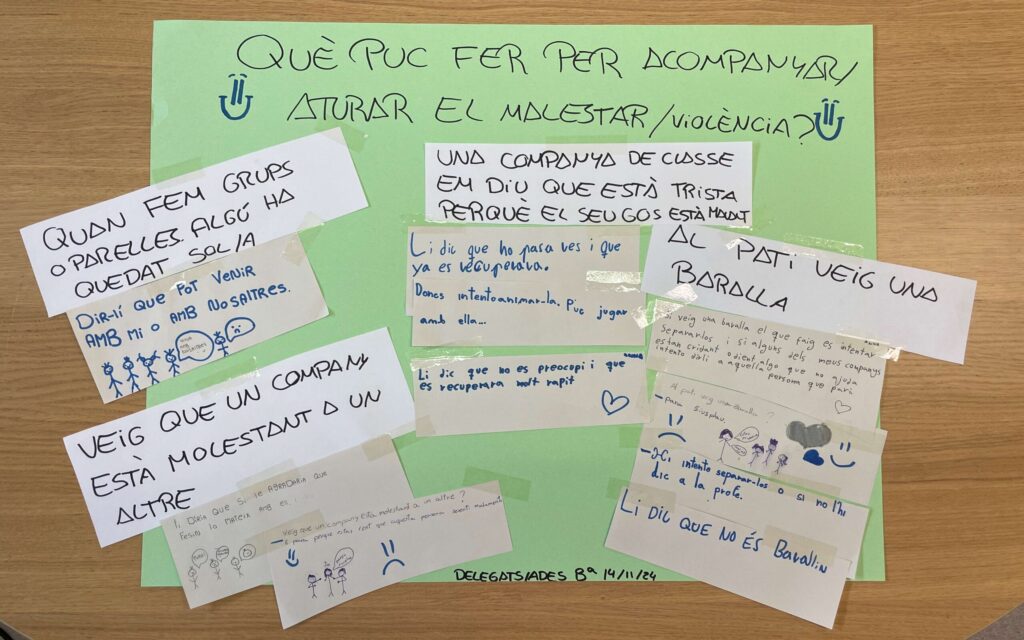 QUÈ PUC FER PER ACOMPANYAR/
ATURAR EL MALESTAR/VIOLÈNCIA?
QUAN FEM GRUPS
O PARELLES. ALGÚ HA
QUEDAT SOL/A
DIR-LÍ QUE POT VENIR
AMB MI O AMB NOSALTRES.
VEIG QUE UN COMPANY
ESTÀ MOLESTANT A UN
ALTRE
DIRIA QUE SI TE AGRADARIA QUE
FESIN LO MATEIX AMB
Veig que un company està molestand a un altre?
para perque estas fent que aquesta persona senti malament
UNA COMPANYA DE CLASSE
EM DIU QUE ESTÀ TRISTA
PERQUÈ EL SEU GOS ESTÀ MALALT
Li dic que no pasa res i que
ya es recuperara.
Doncs intento animar-la. Puc jugar
amb ella...
Li dic que no es preocupi i que
es recuperara molt rapit
AL PATI VEIG UNA
BARALLA
Si veig una baralla el que faig es intentar
separarlos i si alguns dels meus companys
estan cridant o dient algo que no ajuda
intento dirli a aquella persona que pari
Al pati veig una baralla?
-para sisplau.
-Hi intento separar-los o si no lhi
dic a la profe.
LI DIC QUE NO ÉS Barallin
DELEGATS/ADES Bª 14/11/24